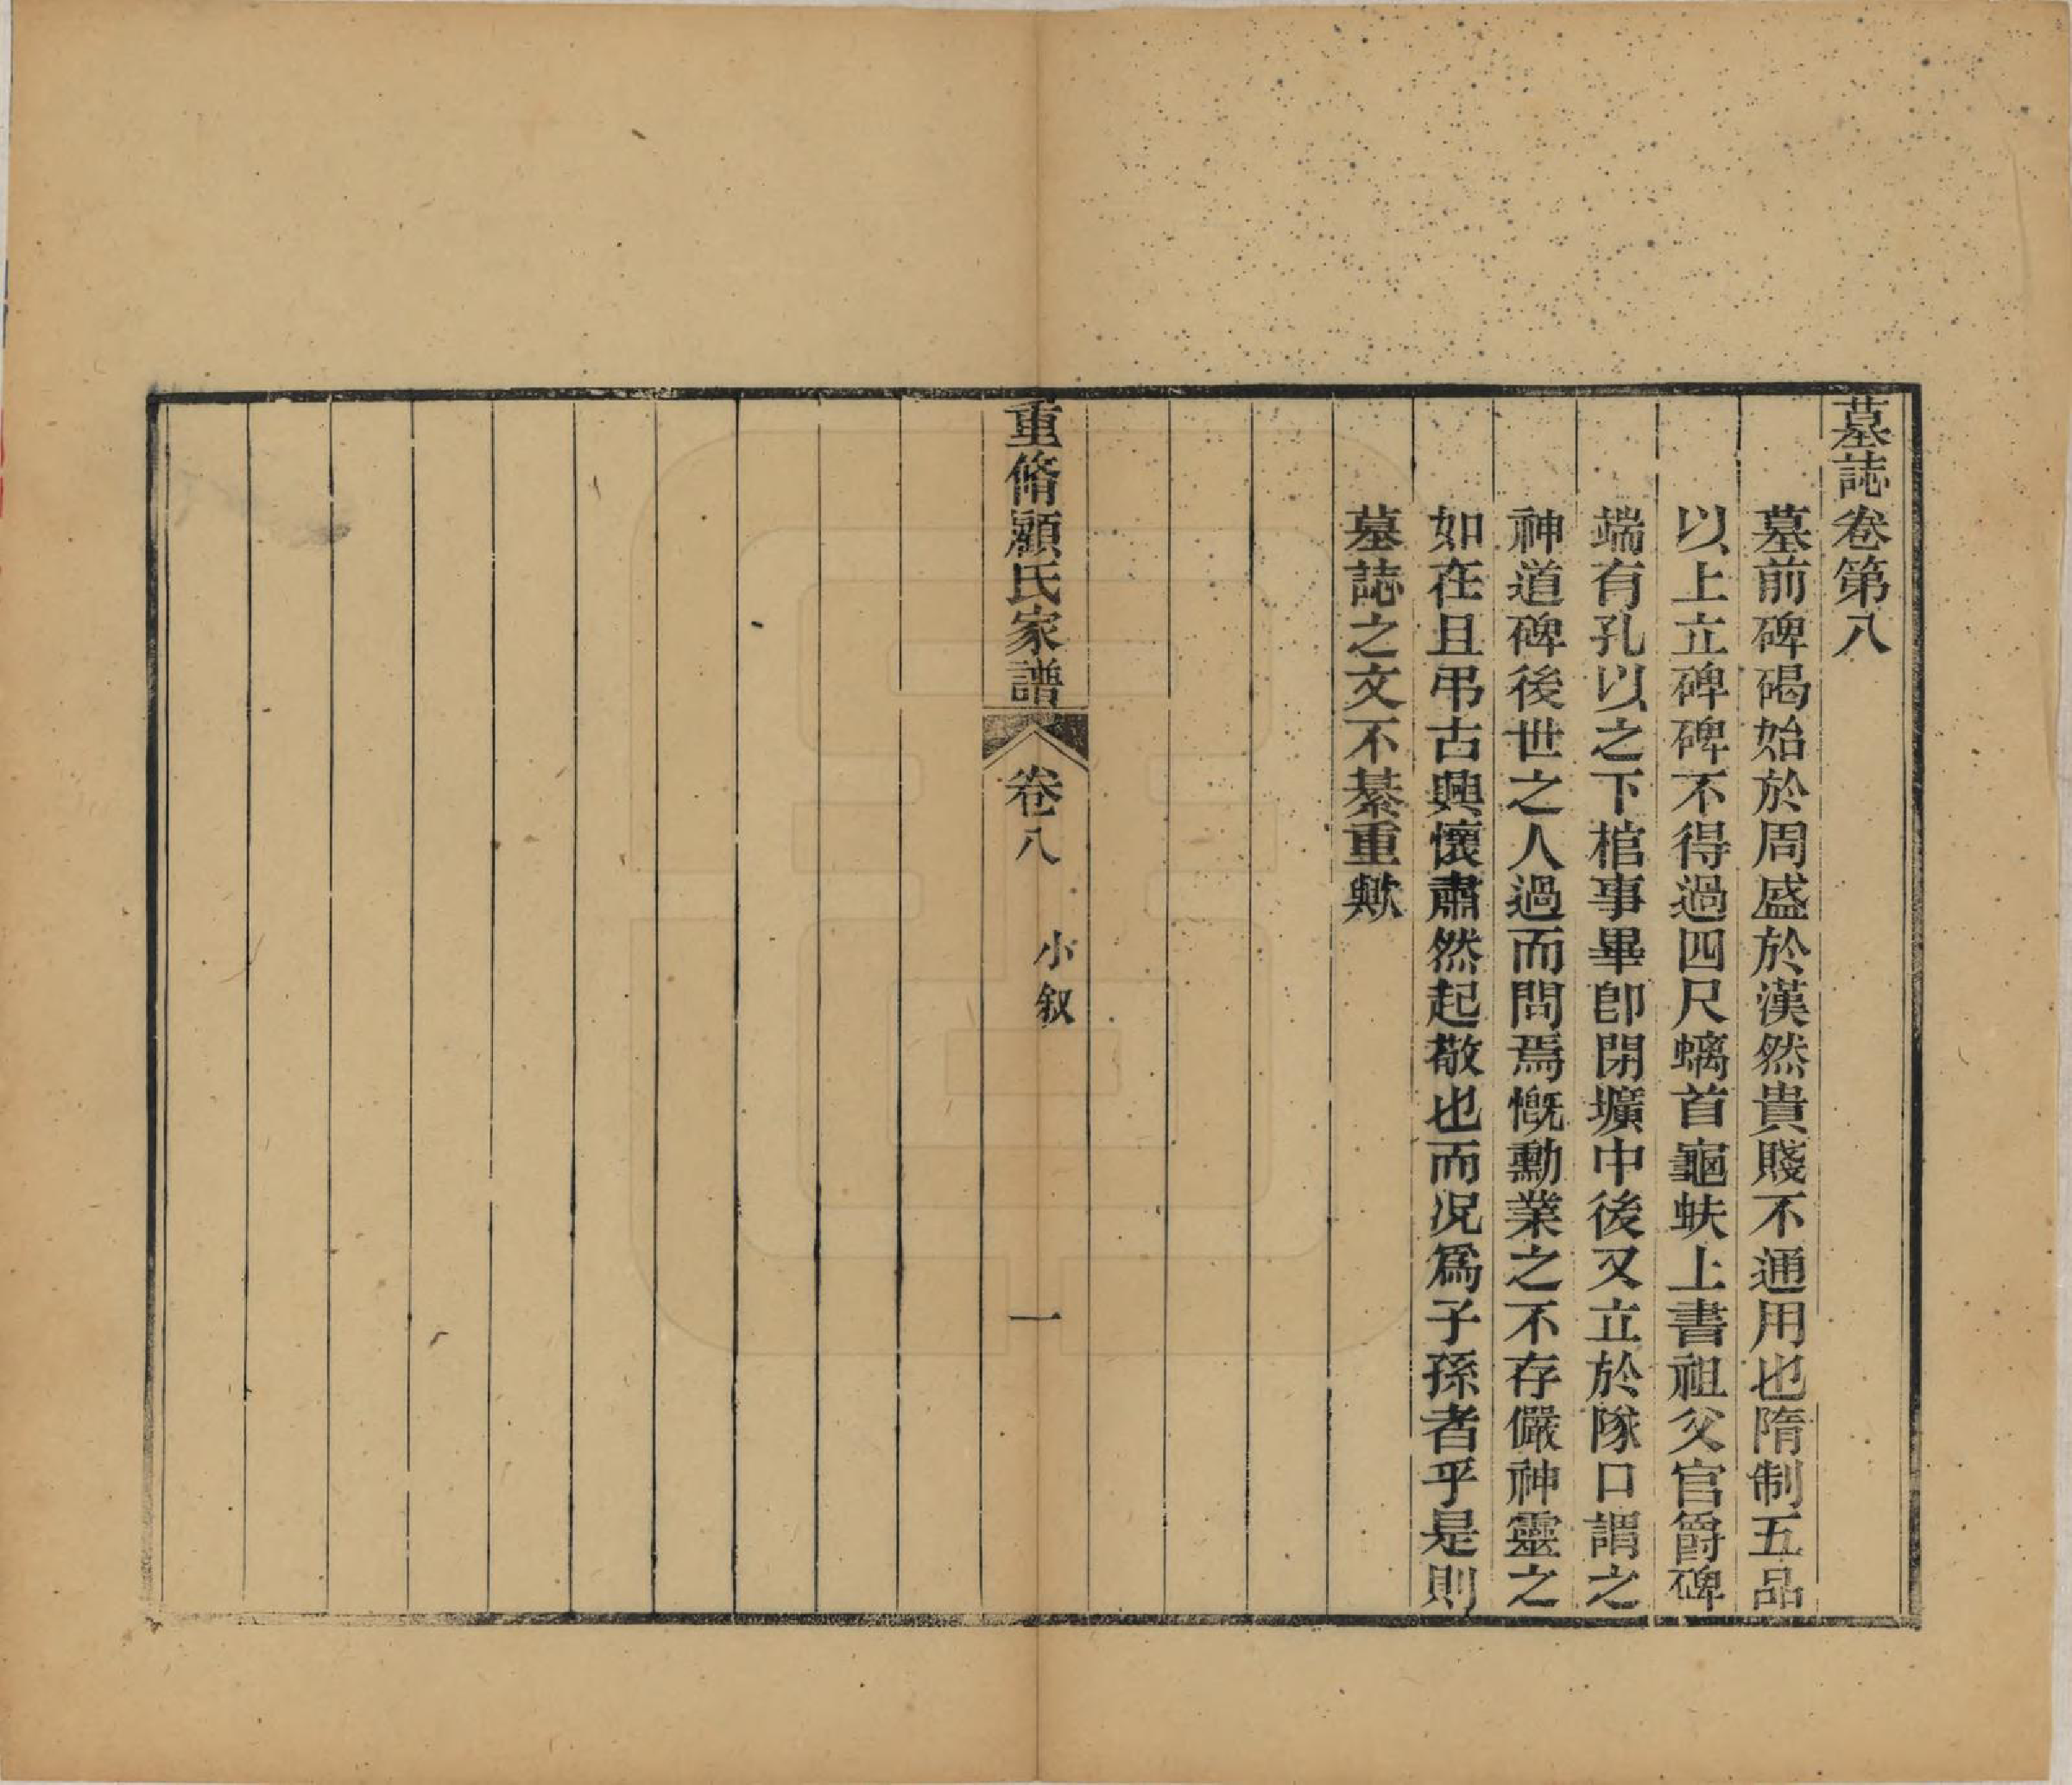 墓誌卷第八
墓前碑碣始於周盛於漢然貴賤不通用也隋制五品
以上立碑碑不得過四尺螭首龜蚨上書祖父官爵碑
端有孔以之下棺事畢卽閉壙中後又立於隊口謂之
神道碑後世之人過而問焉慨勳業之不存儼神靈之
如在且弔古興懷肅然起敬也而況爲子孫者乎是則
墓誌之文不綦重歟
重脩顧氏家譜 卷八 小叙 一